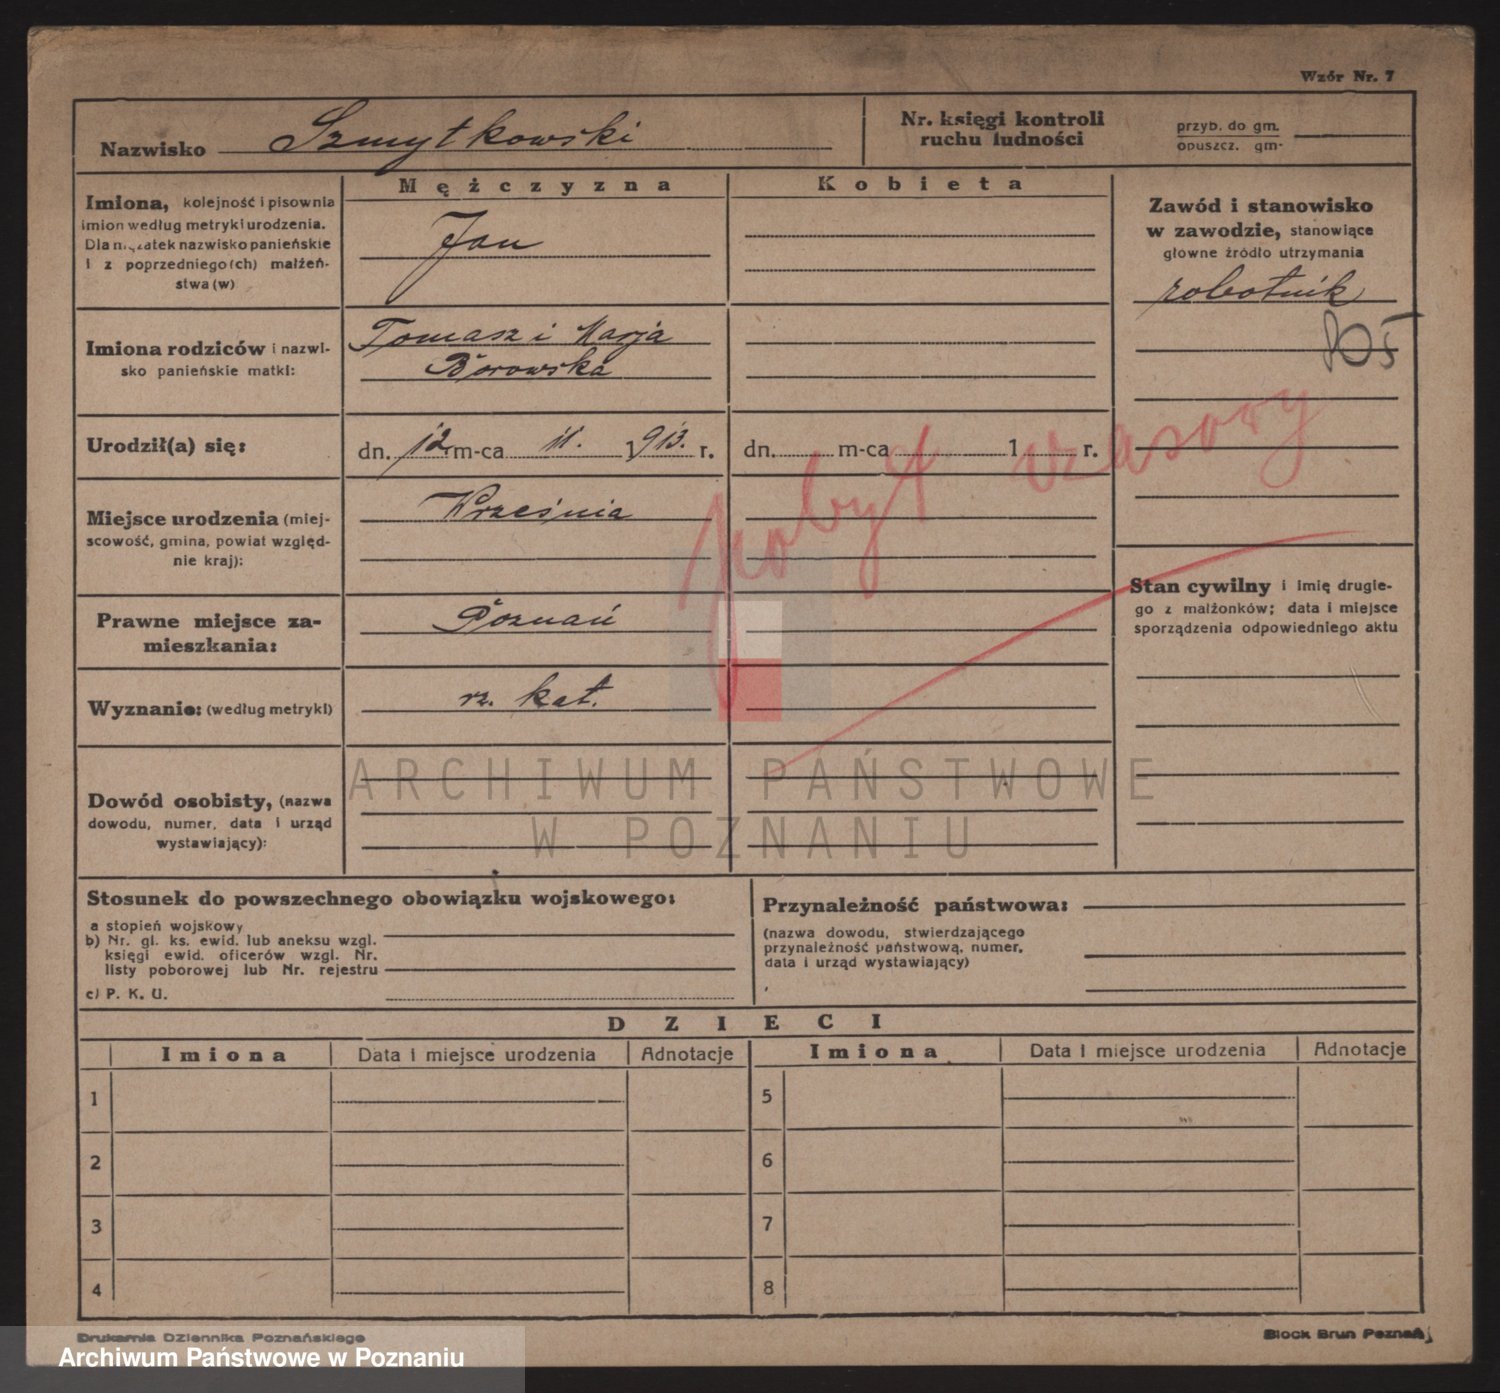 Wzór Nr. 7
Nazwisko Szmytkowski
Nr. księgi kontroli
ruchu ludności
przyb. do gm.
opuszcz. gm.
Mężczyzna
Kobieta
Imiona, kolejność i pisownia
imion według metryki urodzenia.
Dla mężatek nazwisko panieńskie
i z poprzedniego (ch) małżeń-
stwa (w)
Jan
Zawód i stanowisko
w zawodzie, stanowiące
główne źródło utrzymania
robotnik
Imiona rodziców i nazwi-
sko panieńskie matki:
Tomasz i Marja
Borowska
Urodził(a) się:
dn. 12 m-ca 11. 1913. r.
dn. m-ca 1 r.
pobyt czasowy
Miejsce urodzenia (miej-
scowość, gmina, powiat względ-
nie kraj):
Września
Stan cywilny i imię drugie-
go z małżonków; data i miejsce
sporządzenia odpowiedniego aktu
Prawne miejsce za-
mieszkania:
Poznań
Wyznanie: (według metryki)
rz. kat.
Dowód osobisty, (nazwa
dowodu, numer, data i urząd
wystawiający):
ARCHIWUM PAŃSTWOWE
W POZNANIU
Stosunek do powszechnego obowiązku wojskowego:
a stopień wojskowy
b) Nr. gł. ks. ewid. lub aneksu wzgl.
księgi ewid. oficerów wzgl. Nr.
listy poborowej lub Nr. rejestru
c) P. K. U.
Przynależność państwowa:
(nazwa dowodu, stwierdzającego
przynależność państwową, numer,
data i urząd wystawiający)
DZIECI
Imiona Data i miejsce urodzenia Adnotacje Imiona Data i miejsce urodzenia Adnotacje
1 5
2 6
3 7
4 8
Drukarnia Dziennika Poznańskiego
Block Brun Poznań
Archiwum Państwowe w Poznaniu